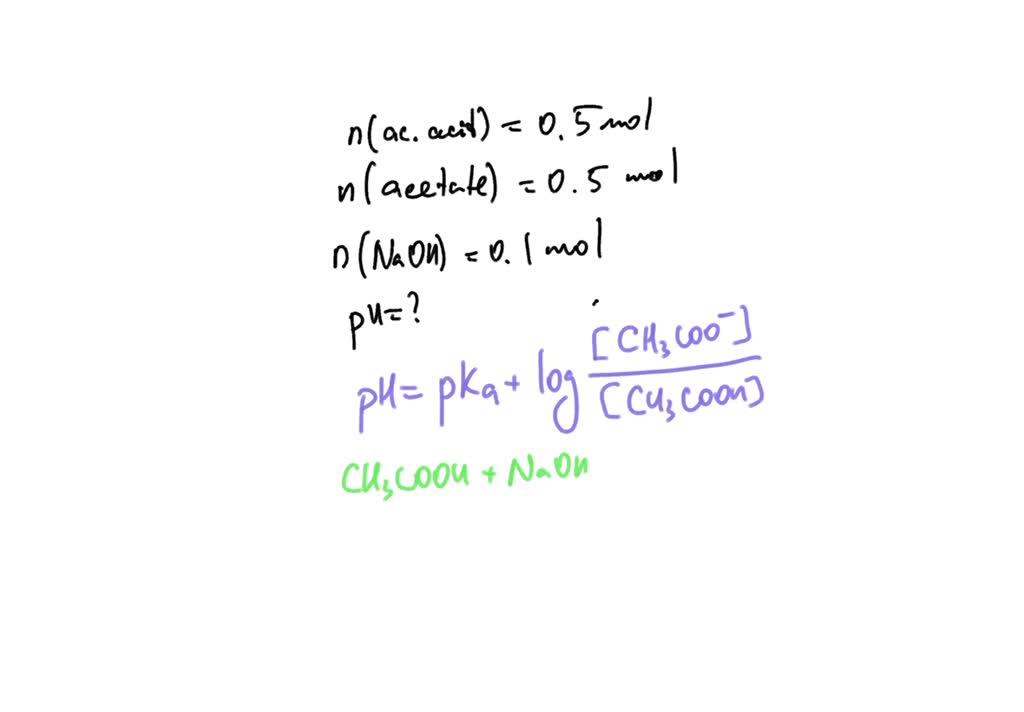 n(ac. acid) = 0.5 mol
n(acetate) = 0.5 mol
n(NaOH) = 0.1 mol
pH=?
pH= pKa + log [CH₃COO⁻] / [CH₃COOH]
CH₃COOH + NaOH